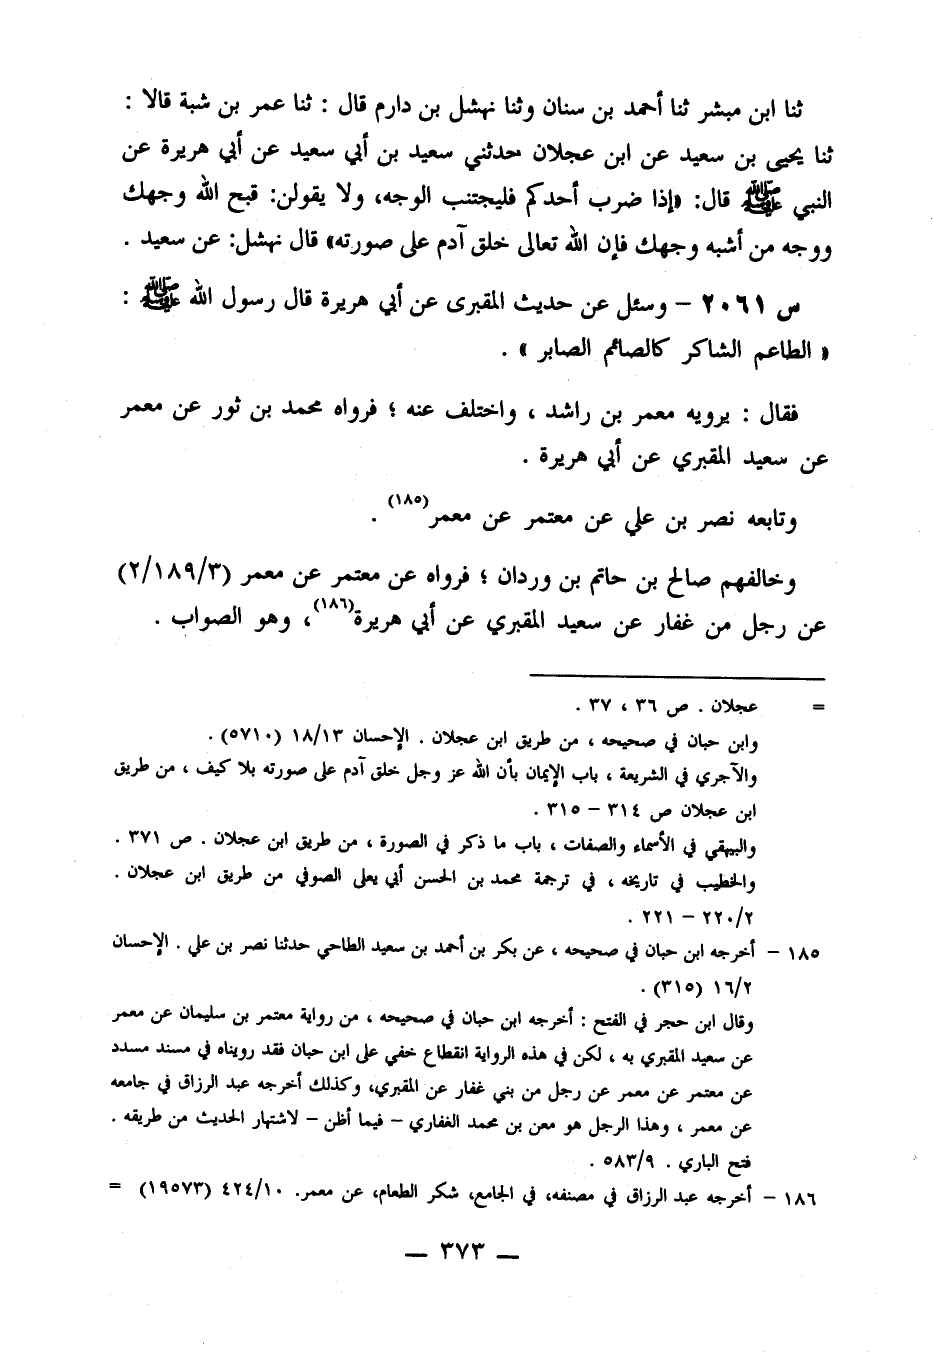 ثنا ابن مبشر ثنا أحمد بن سنان وثنا نهشل بن دارم قال : ثنا عمر بن شبة قالا :
ثنا يحيى بن سعيد عن ابن عجلان حدثني سعيد بن أبي سعيد عن أبي هريرة عن
النبي ﷺ قال: «إذا ضرب أحدكم فليجتنب الوجه، ولا يقولن: قبح الله وجهك
ووجه من أشبه وجهك فإن الله تعالى خلق آدم على صورته» قال نهشل: عن سعيد .
س ٢٠٦١ – وسئل عن حديث المقبرى عن أبي هريرة قال رسول الله ﷺ :
« الطاعم الشاكر كالصائم الصابر » .
فقال : يرويه معمر بن راشد ، واختلف عنه ؛ فرواه محمد بن ثور عن معمر
عن سعيد المقبري عن أبي هريرة .
وتابعه نصر بن علي عن معتمر عن معمر(١٨٥) .
وخالفهم صالح بن حاتم بن وردان ؛ فرواه عن معتمر عن معمر (٢/١٨٩/٣)
عن رجل من غفار عن سعيد المقبري عن أبي هريرة(١٨٦)، وهو الصواب .
= عجلان . ص ٣٦ ، ٣٧ .
وابن حبان في صحيحه ، من طريق ابن عجلان . الإحسان ١٨/١٣ (٥٧١٠) .
والآجري في الشريعة ، باب الإيمان بأن الله عز وجل خلق آدم على صورته بلا كيف ، من طريق
ابن عجلان ص ٣١٤ – ٣١٥ .
والبيهقي في الأسماء والصفات ، باب ما ذكر في الصورة ، من طريق ابن عجلان . ص ٣٧١ .
والخطيب في تاريخه ، في ترجمة محمد بن الحسن أبي يعلى الصوفي من طريق ابن عجلان .
٢٢٠/٢ – ٢٢١ .
١٨٥ – أخرجه ابن حبان في صحيحه ، عن بكر بن أحمد بن سعيد الطاحي حدثنا نصر بن علي . الإحسان
١٦/٢ (٣١٥) .
وقال ابن حجر في الفتح : أخرجه ابن حبان في صحيحه ، من رواية معتمر بن سليمان عن معمر
عن سعيد المقبري به ، لكن في هذه الرواية انقطاع خفي على ابن حبان فقد رويناه في مسند مسدد
عن معتمر عن معمر عن رجل من بني غفار عن المقبري، وكذلك أخرجه عبد الرزاق في جامعه
عن معمر ، وهذا الرجل هو معن بن محمد الغفاري – فيما أظن – لاشتهار الحديث من طريقه .
فتح الباري . ٥٨٣/٩ .
١٨٦ – أخرجه عبد الرزاق في مصنفه، في الجامع، شكر الطعام، عن معمر. ٤٢٤/١٠ (١٩٥٧٣) =
— ٣٧٣ —